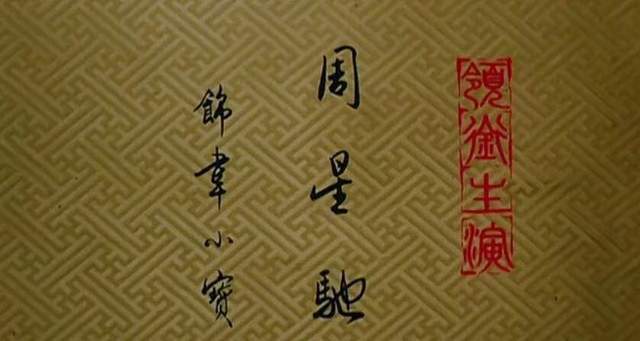 領銜主演
周星馳
飾韋小寶